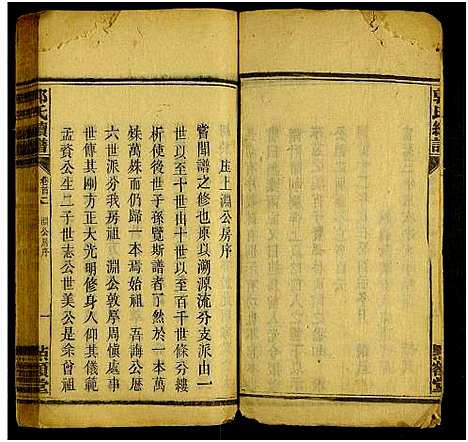 庄上淵公房序
嘗聞譜之修也原以溯源流分支派由一
世以至十世由十世以至百千世條分縷
析使後世子孫覽斯譜者了然於一本萬
殊萬殊而仍歸一本焉始祖　吾誨公厯
六世派分我房祖　淵公敦學周傎處事
世傳其剛方正大光明修身人仰其儀範
孟資公生二子世志公世美公是朱曾祖
郭氏續譜
卷首二
淵公房序
一
點頷堂
郭氏續譜
點頷堂